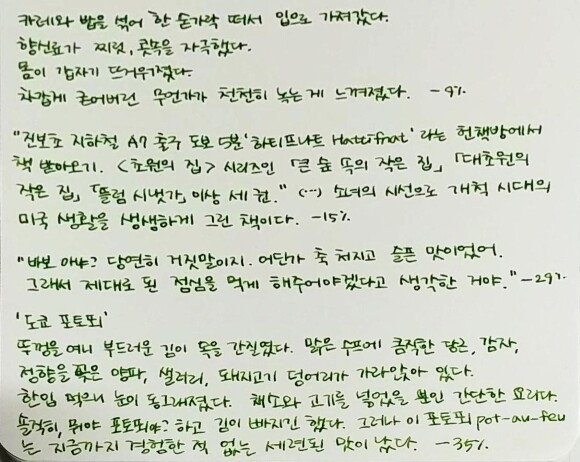 카레와 밥을 섞어 한 숟가락 떠서 입으로 가져갔다.
향신료가 찌릿, 콧등을 자극했다.
몸이 갑자기 뜨거워졌다.
차갑게 굳어버린 무언가가 천천히 녹는 게 느껴졌다. -9%
"진보초 지하철 A7 출구 도보 5분 '하티프나트 Hattifnat' 라는 헌책방에서
책 받아오기. <초원의 집> 시리즈인 「큰 숲 속의 작은 집」「대초원의
작은 집」「플럼 시냇가」 이상 세 권." (…) 소녀의 시선으로 개척 시대의
미국 생활을 생생하게 그린 책이다. -15%
"바보 아냐? 당연히 거짓말이지. 어딘가 축 처지고 슬픈 맛이었어.
그래서 제대로 된 점심을 먹게 해주어야겠다고 생각한 거야." -29%
'도쿄 포토푀'
뚜껑을 여니 부드러운 김이 목을 간질였다. 맑은 수프에 큼직한 당근, 감자,
정향을 꽂은 양파, 샐러리, 돼지고기 덩어리가 가라앉아 있다.
한입 먹으니 눈이 동그래졌다. 채소와 고기를 넣었을 뿐인 간단한 요리다.
솔직히, 뭐야 포토푀야? 하고 김이 빠지긴 했다. 그러나 이 포토푀 pot-au-feu
는 지금까지 경험한 적 없는 세련된 맛이 났다. -35%